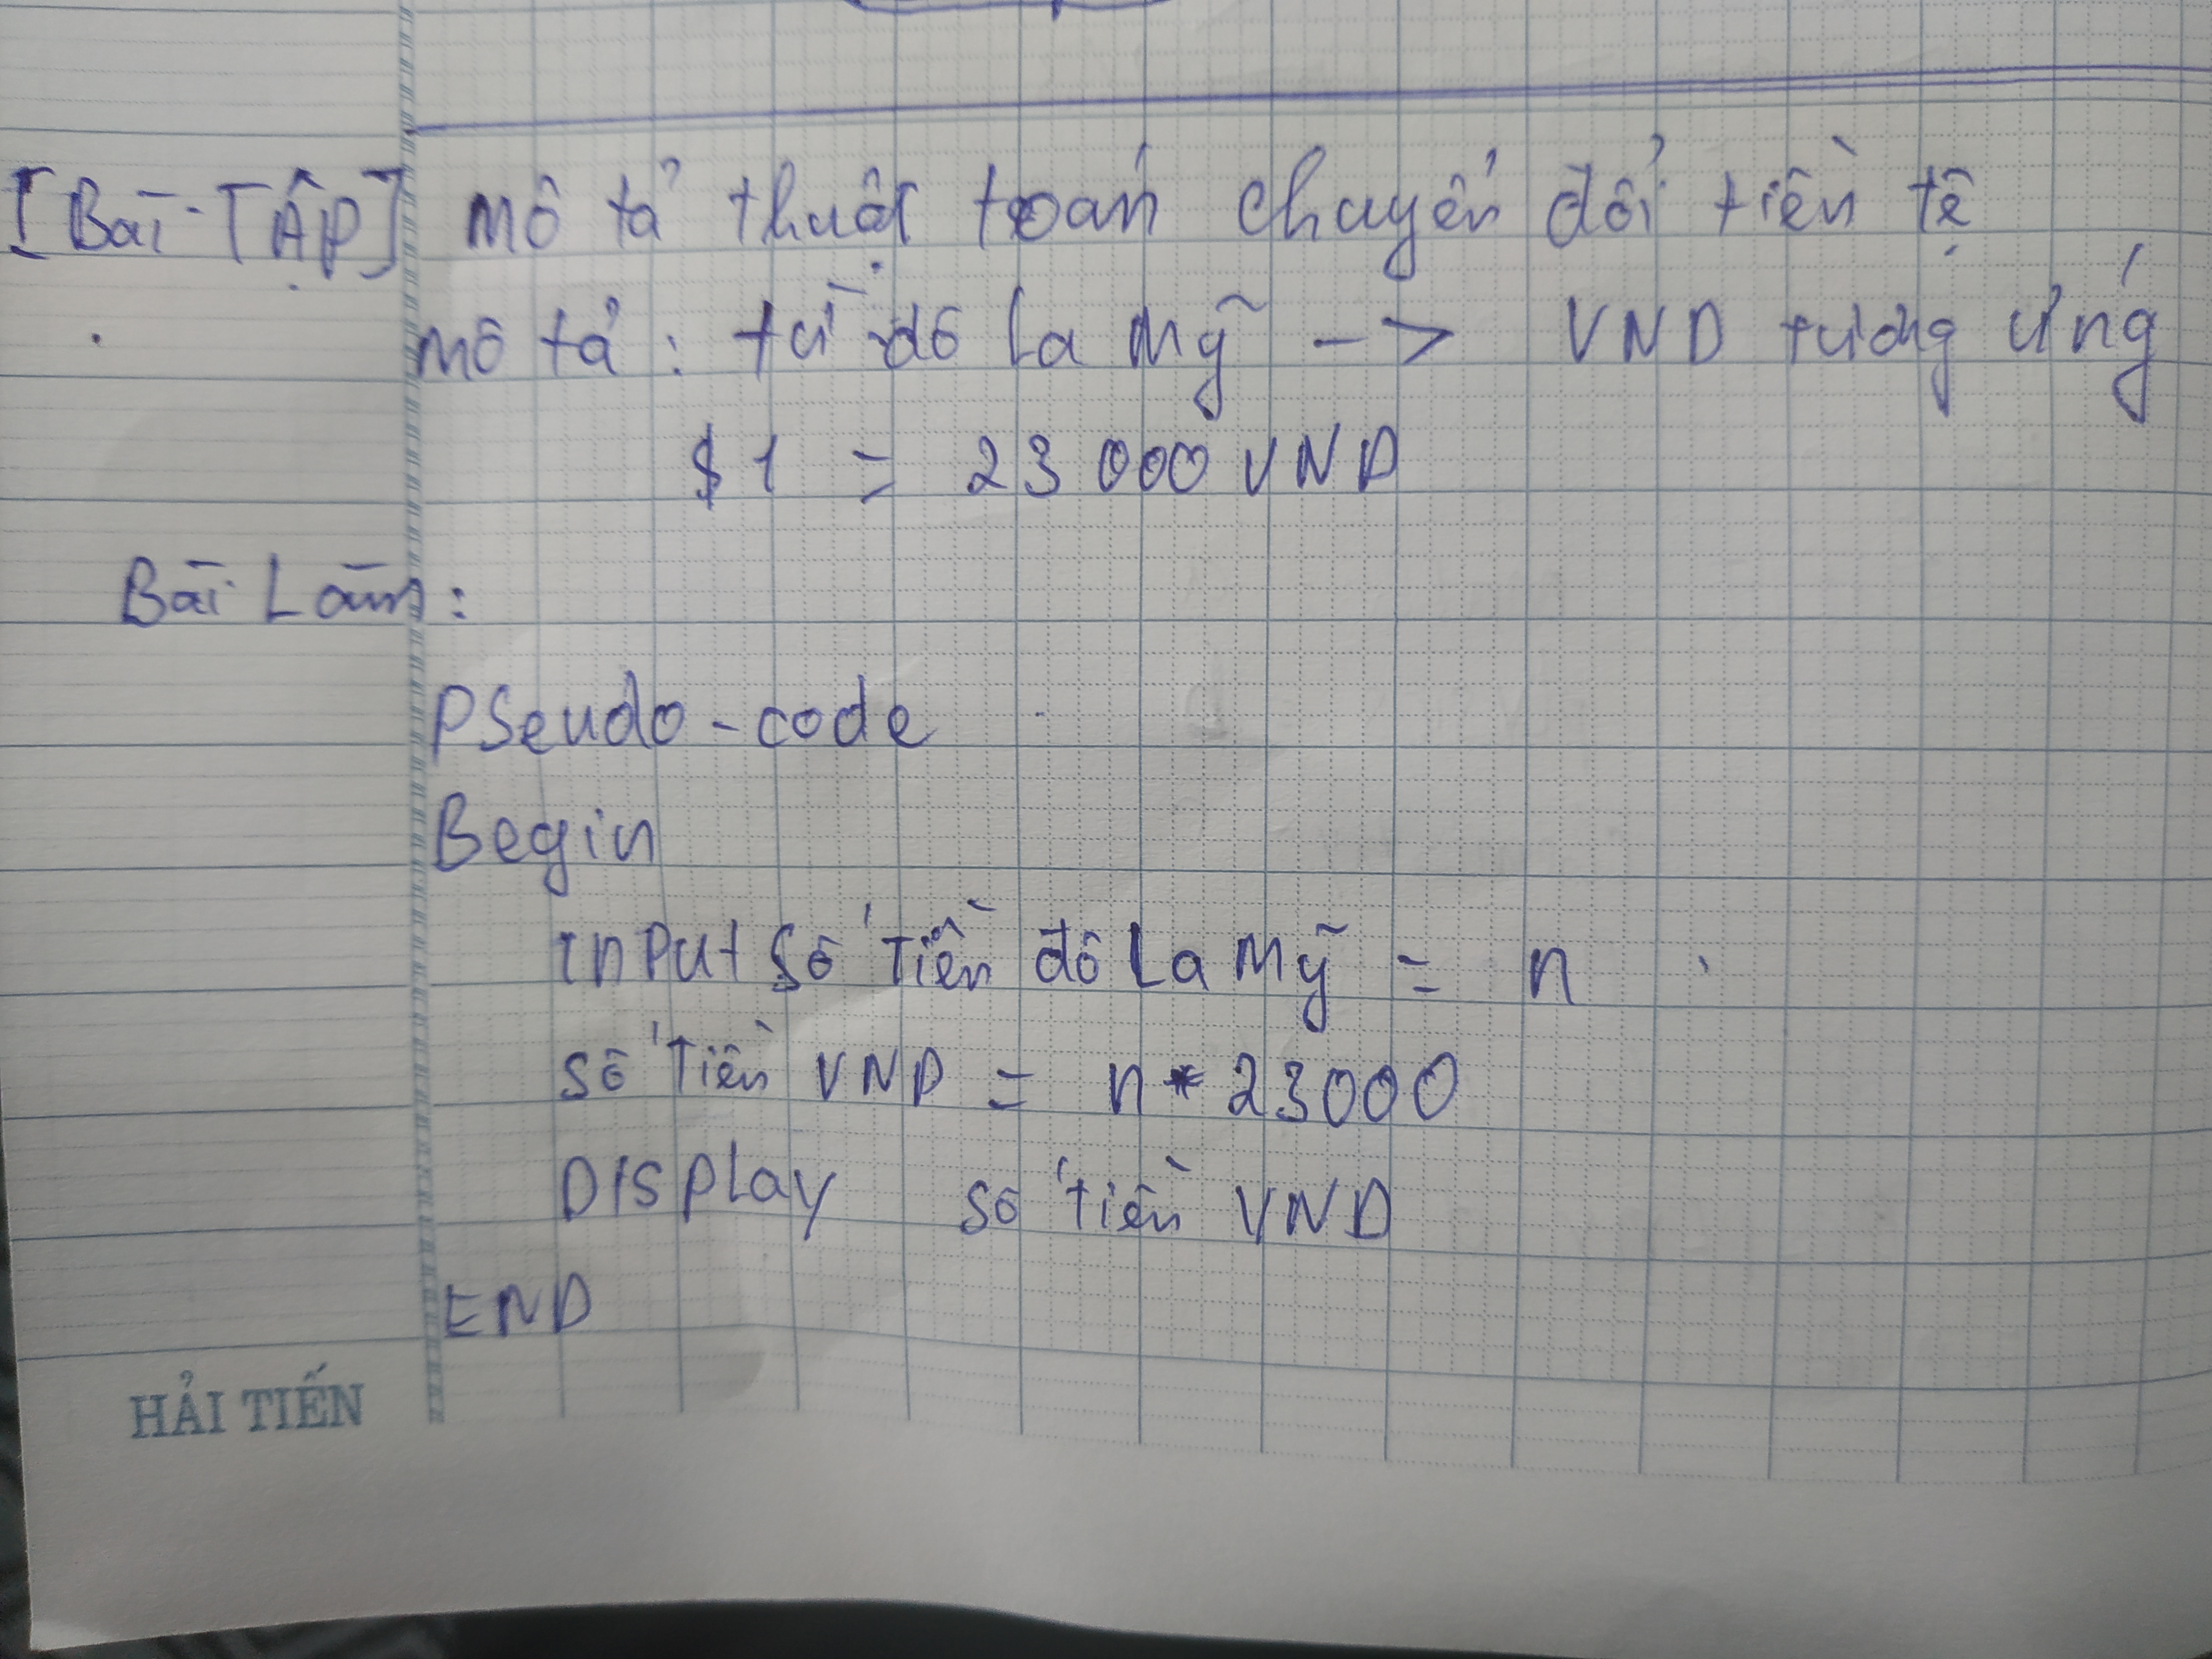 [Bài TẬP] Mô tả thuật toán chuyển đổi tiền tệ
mô tả : từ đô la Mỹ -> VND tương ứng
$1 = 23 000 VND
Bài Làm :
PSeudo-code
Begin
InPut Số Tiền đô La Mỹ = n
Số Tiền VND = n * 23000
DISPLay Số tiền VND
END
HẢI TIẾN